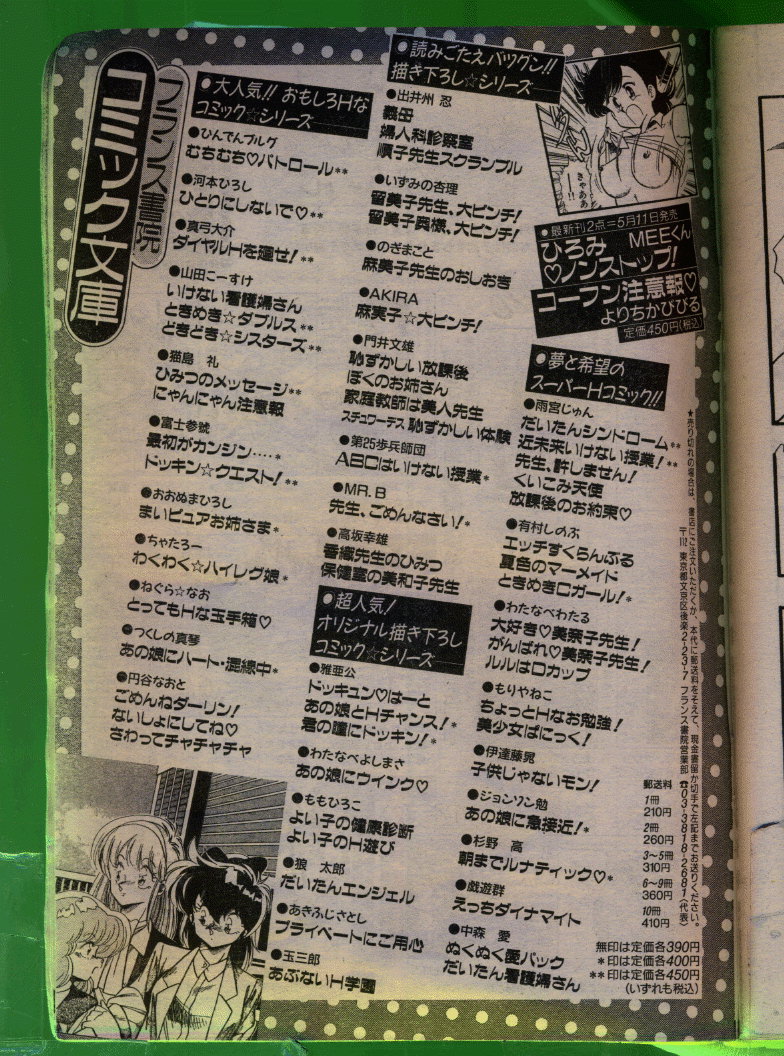 フランス書院
コミック文庫
●読みごたえバツグン!!
描き下ろし☆シリーズ
●出井州 忍
義母
婦人科診察室
順子先生スクランブル
●いずみの杏理
留美子先生、大ピンチ!
留美子異様、大ピンチ!
●のぎまこと
麻美子先生のおしおき
●AKIRA
麻実子☆大ピンチ!
●門井文雄
恥ずかしい放課後
ぼくのお姉さん
家庭教師は美人先生
スチュワーデス 恥ずかしい体験
●第25歩兵師団
ABCはいけない授業*
●MR.B
先生、ごめんなさい!*
●高坂幸雄
香織先生のひみつ
保健室の美和子先生
●大人気!! おもしろHな
コミック☆シリーズ
●ひんでんブルグ
むちむち♡パトロール**
●河本ひろし
ひとりにしないで♡**
●真弓大介
ダイヤルHを廻せ!**
●山田こーすけ
いけない看護婦さん
ときめき☆ダブルス**
どきどき☆シスターズ**
●猫島 礼
ひみつのメッセージ**
にゃんにゃん注意報
●富士参號
最初がカンジン‥‥*
ドッキン☆クエスト!**
●おおぬまひろし
まいピュアお姉さま*
●ちゃたろー
わくわく☆ハイレグ娘*
●ねぐら☆なお
とってもHな玉手箱♡
●つくしの真琴
あの娘にハート・混線中*
●円谷なおと
ごめんねダーリン!
ないしょにしてね♡
さわってチャチャチャ
●超人気!
オリジナル描き下ろし
コミック☆シリーズ
●雅亜公
ドッキュン♡はーと
あの娘とHチャンス!*
君の瞳にドッキン!*
●わたなべよしまさ
あの娘にウインク♡
●ももひろこ
よい子の健康診断
よい子のH遊び
●狼 太郎
だいたんエンジェル
●あきふじさとし
プライベートにご用心
●玉三郎
あぶないH学園
きゃああ
!!
●最新刊2点=5月11日発売
ひろみ MEEくん
♡ノンストップ!
コーフン注意報♡
よりちかびびる
定価450円(税込)
●夢と希望の
スーパーHコミック!!
●雨宮じゅん
だいたんシンドローム**
近未来いけない授業!**
先生、許しません!
くいこみ天使
放課後のお約束♡
●有村しのぶ
エッチすくらんぶる
夏色のマーメイド
ときめきCガール!*
●わたなべわたる
大好き♡美奈子先生!
がんばれ♡美奈子先生!
ルルはDカップ
●もりやねこ
ちょっとHなお勉強!
美少女ぱにっく!
●伊達藤晃
子供じゃないモン!
●ジョンソン勉
あの娘に急接近!*
●杉野 高
朝までルナティック♡*
●戯遊群
えっちダイナマイト
●中森 愛
ぬくぬく愛パック
だいたん看護婦さん
★売り切れの場合は、書店にご注文いただくか、本代に郵送料をそえて、現金書留か切手で左記までお送りください。
〒112 東京都文京区後楽2-23-7 フランス書院営業部 ☎03-3818-2681(代表)
郵送料
1冊
210円
2冊
260円
3〜5冊
310円
6〜9冊
360円
10冊
410円
無印は定価各390円
*印は定価各400円
**印は定価各450円
(いずれも税込)